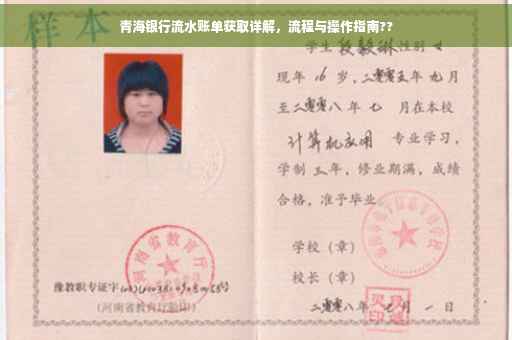 青海银行流水账单获取详解，流程与操作指南??
样本
学生 段毅琳 性别
现年 16 岁，二零零五年 九 月
至二零零八 年 七 月在本校
计算机应用 专业学习，
学制 三 年，修业期满，成绩
合格，准予毕业
学校（章）
校长（章）
二零零八 年 七 月 一 日
河南省教育厅
豫教职专证字
(河南省教育厅验印)